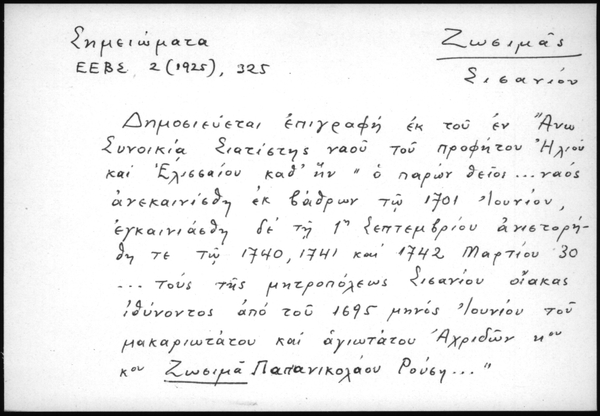 Σημειώματα
Ζωσιμᾶς
ΕΕΒΣ 2 (1925), 325
Σισανίου
Δημοσιεύεται ἐπιγραφή ἐκ τοῦ ἐν Ἄνω
Συνοικίᾳ Σιατίστης ναοῦ τοῦ προφήτου Ἠλιοῦ
καί Ἐλισσαίου καθ' ἥν " ὁ παρών θεῖος ... ναός
ἀνεκαινίσθη ἐκ βάθρων τῷ 1701 Ἰουνίου,
ἐγκαινιάσθη δέ τῇ 1ῃ Σεπτεμβρίου ἀνιστορή-
θη τε τῷ 1740, 1741 καί 1742 Μαρτίου 30
... τούς τῆς μητροπόλεως Σισανίου οἴακας
ἰθύνοντος ἀπό τοῦ 1695 μηνός Ἰουνίου τοῦ
μακαριωτάτου καί ἁγιωτάτου Ἀχριδῶν κου
κου Ζωσιμᾶ Παπανικολάου Ρούση ... "